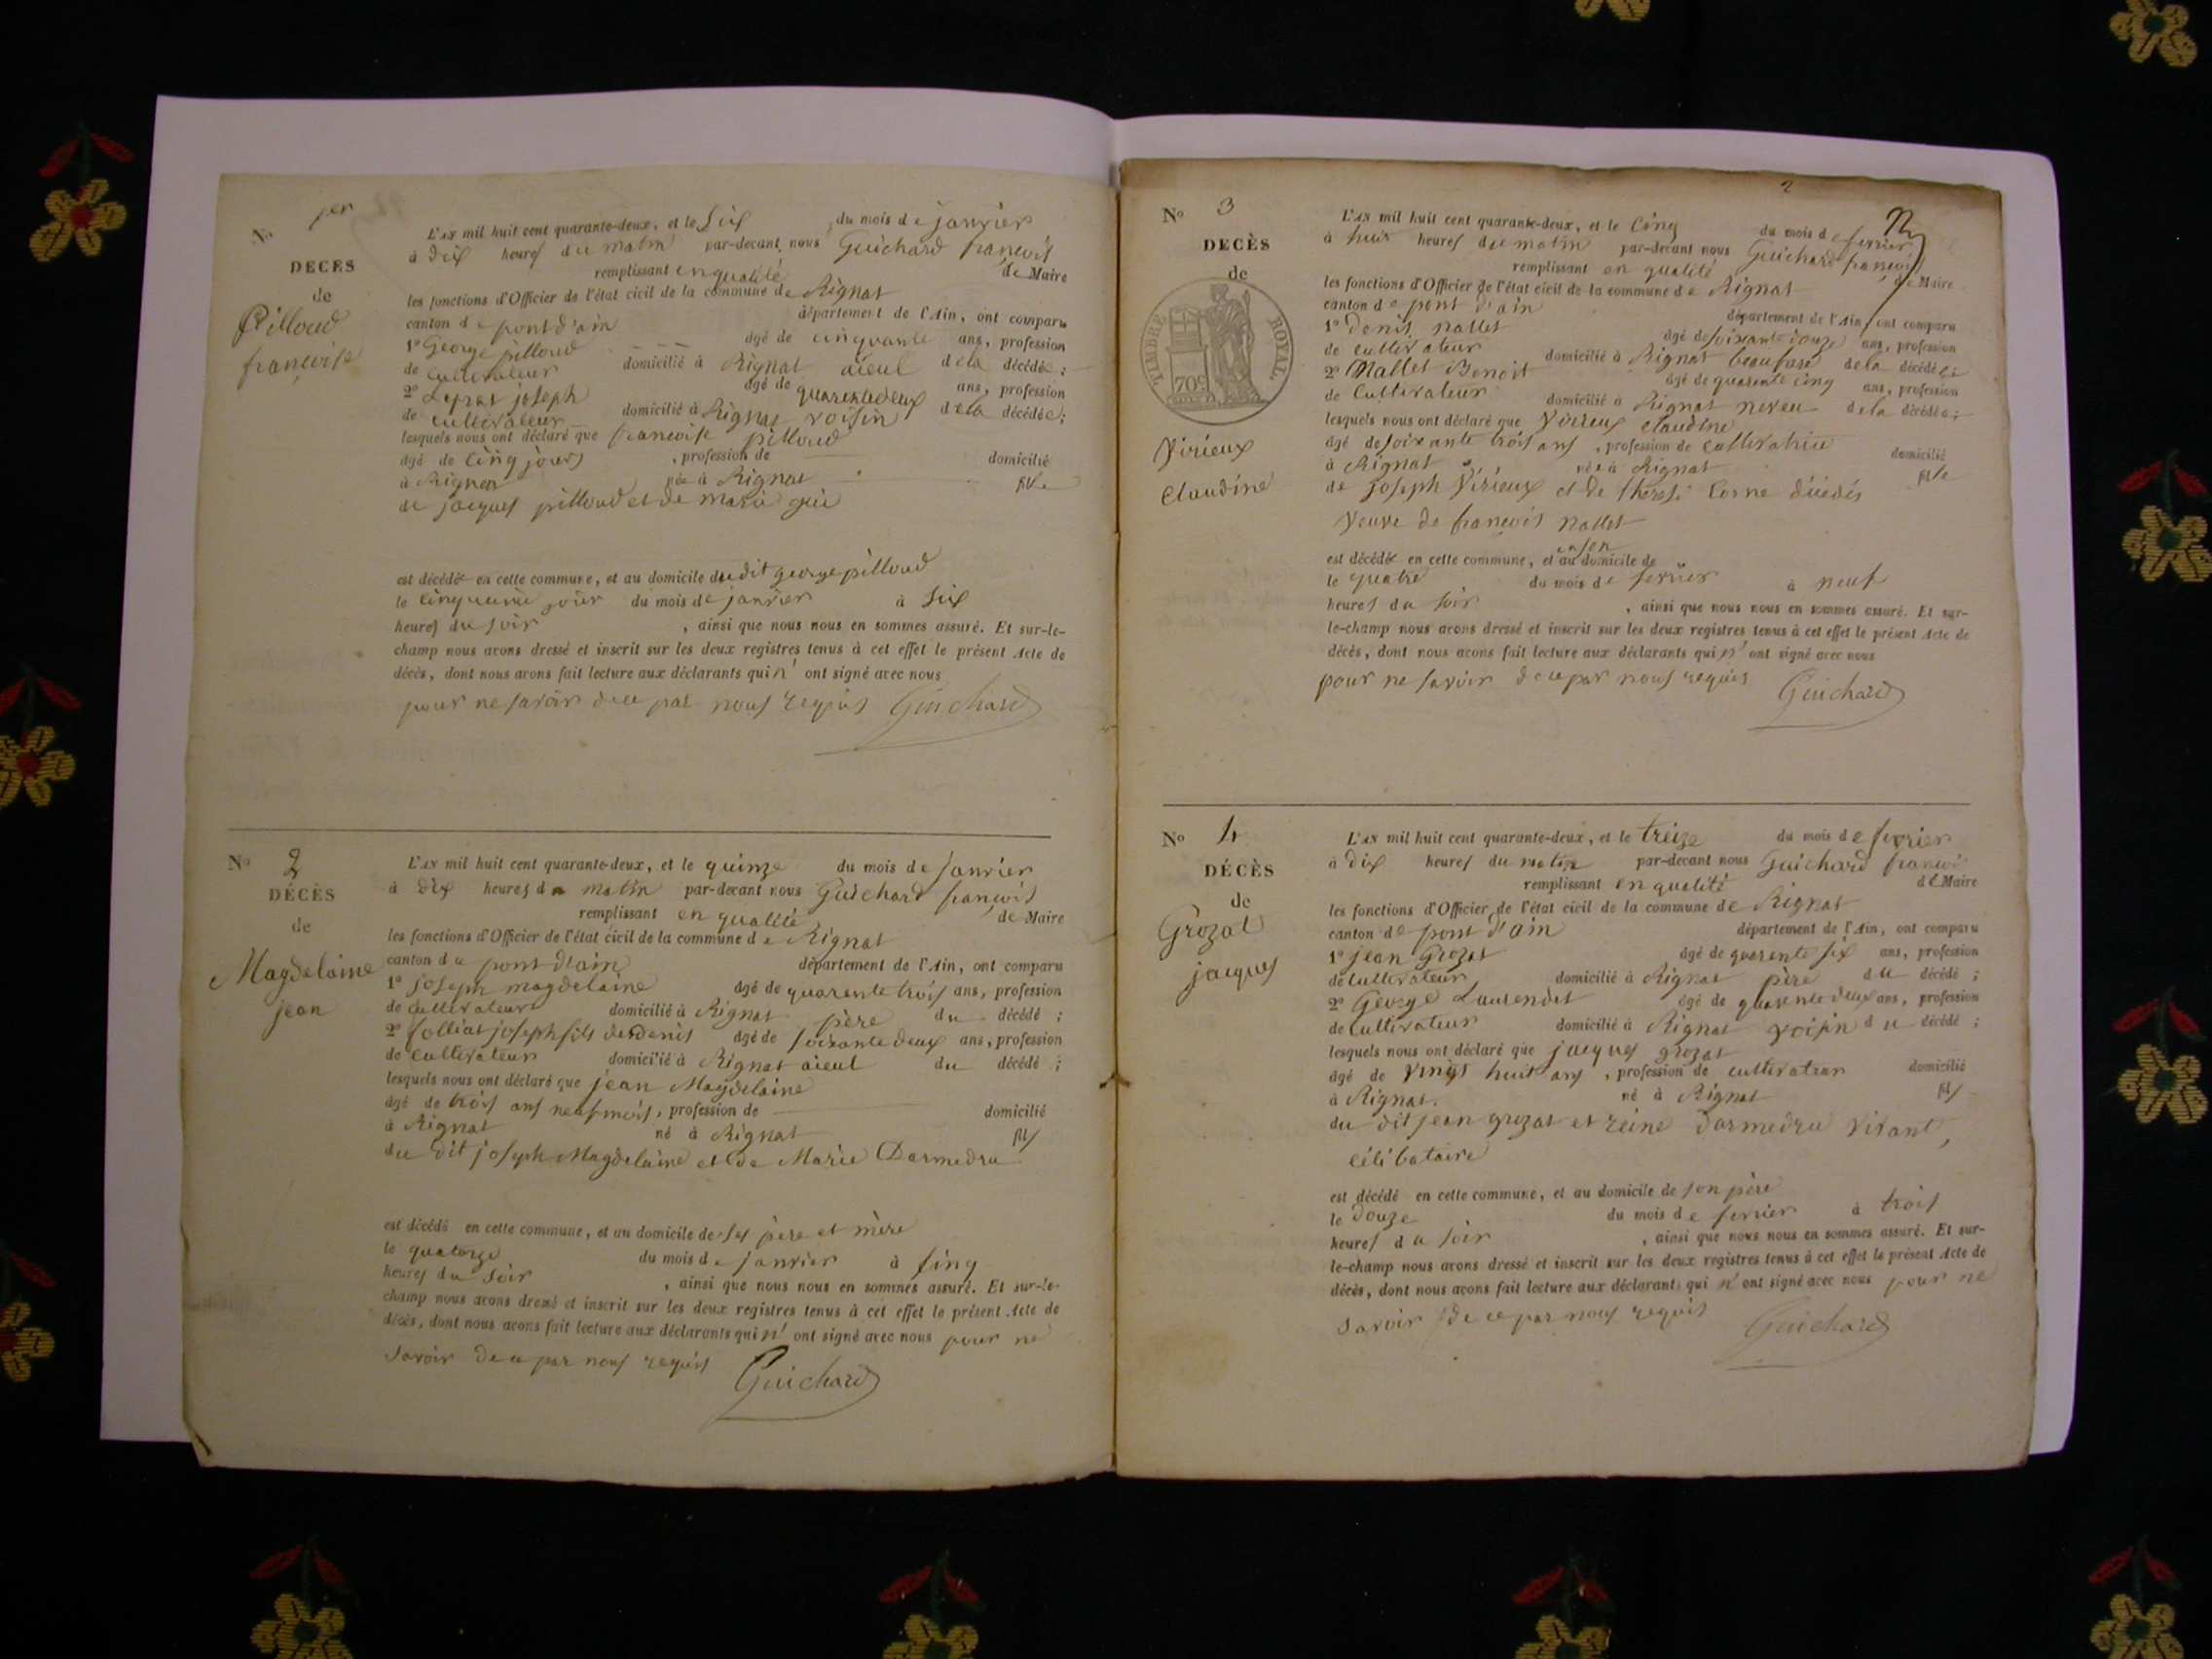 N° 1er
DÉCÈS
de
Pilloud
françoise
L'AN mil huit cent quarante-deux, et le Six du mois de janvier
à dix heures du matin par-devant nous Guichard françois
remplissant en qualité de Maire
les fonctions d'Officier de l'état civil de la commune de Rignat
canton de pont d'ain département de l'Ain, ont comparu
1° George pilloud âgé de cinquante ans, profession
de cultivateur domicilié à Rignat aïeul de la décédée;
2° Lepras joseph âgé de quarante deux ans, profession
de cultivateur domicilié à Rignat voisin de la décédée;
lesquels nous ont déclaré que francoise pilloud
âgé de cinq jours, profession de domicilié
à Rignat née à Rignat fille
de jacques pilloud et de maria
est décédée en cette commune, et au domicile du dit george pilloud
le cinquieme jour du mois de janvier à Six
heures du soir, ainsi que nous nous en sommes assuré. Et sur-le-
champ nous avons dressé et inscrit sur les deux registres tenus à cet effet le présent Acte de
décès, dont nous avons fait lecture aux déclarants qui n'ont signé avec nous
pour ne savoir de ce par nous requis Guichard
N° 2
DÉCÈS
de
Magdelaine
jean
L'AN mil huit cent quarante-deux, et le quinze du mois de Janvier
à Dix heures du matin par-devant nous Guichard françois
remplissant en qualité de Maire
les fonctions d'Officier de l'état civil de la commune de Rignat
canton de pont d'ain département de l'Ain, ont comparu
1° joseph magdelaine âgé de quarente trois ans, profession
de cultivateur domicilié à Rignat père du décédé;
2° folliat joseph fils de denis âgé de soixante deux ans, profession
de cultivateur domicilié à Rignat aïeul du décédé;
lesquels nous ont déclaré que jean Magdelaine
âgé de trois ans neuf mois, profession de domicilié
à Rignat né à Rignat fils
du dit joseph Magdelaine et de Marie Darmedru
est décédé en cette commune, et au domicile de ses père et mère
le quatorze du mois de janvier à cinq
heures du soir, ainsi que nous nous en sommes assuré. Et sur-le-
champ nous avons dressé et inscrit sur les deux registres tenus à cet effet le présent Acte de
décès, dont nous avons fait lecture aux déclarants qui n'ont signé avec nous pour ne
savoir de ce par nous requis Guichard
2
N° 3
DÉCÈS
de
TIMBRE ROYAL
70c
Virieux
Claudine
L'AN mil huit cent quarante-deux, et le Cinq du mois de fevrier
à huit heures du matin par-devant nous Guichard françois
remplissant en qualité de Maire
les fonctions d'Officier de l'état civil de la commune de Rignat
canton de pont d'ain département de l'Ain, ont comparu
1° denis nallet âgé de soixante douze ans, profession
de cultivateur domicilié à Rignat beaufrere de la décédée
2° Nallet Benoit âgé de quarente cinq ans, profession
de Cultivateur domicilié à Rignat neveu de la décédée;
lesquels nous ont déclaré que Virieux claudine
âgé de soixante trois ans, profession de cultivatrice domicilié
à Rignat née à Rignat fille
de joseph Virieux et de therese Corne décédés
veuve de francois nallet
est décédée en cette commune, et en son au domicile de
le quatre du mois de fevrier à neuf
heures du soir, ainsi que nous nous en sommes assuré. Et sur-
le-champ nous avons dressé et inscrit sur les deux registres tenus à cet effet le présent Acte de
décès, dont nous avons fait lecture aux déclarants qui n'ont signé avec nous
pour ne savoir de ce par nous requis Guichard
N° 4
DÉCÈS
de
Grozat
jacques
L'AN mil huit cent quarante-deux, et le treize du mois de fevrier
à dix heures du matin par-devant nous Guichard françois
remplissant en qualité de Maire
les fonctions d'Officier de l'état civil de la commune de Rignat
canton de pont d'ain département de l'Ain, ont comparu
1° jean Grozat âgé de quarente six ans, profession
de cultivateur domicilié à Rignat père du décédé;
2° George Laurendet âgé de quarente deux ans, profession
de cultivateur domicilié à Rignat voisin du décédé;
lesquels nous ont déclaré que jacques grozat
âgé de vingt huit ans, profession de cultivateur domicilié
à Rignat. né à Rignat fils
du dit jean grozat et reine darmedru vivant,
célibataire
est décédé en cette commune, et au domicile de son père
le douze du mois de fevrier à trois
heures du soir, ainsi que nous nous en sommes assuré. Et sur-
le-champ nous avons dressé et inscrit sur les deux registres tenus à cet effet le présent Acte de
décès, dont nous avons fait lecture aux déclarants qui n'ont signé avec nous pour ne
savoir de ce par nous requis Guichard